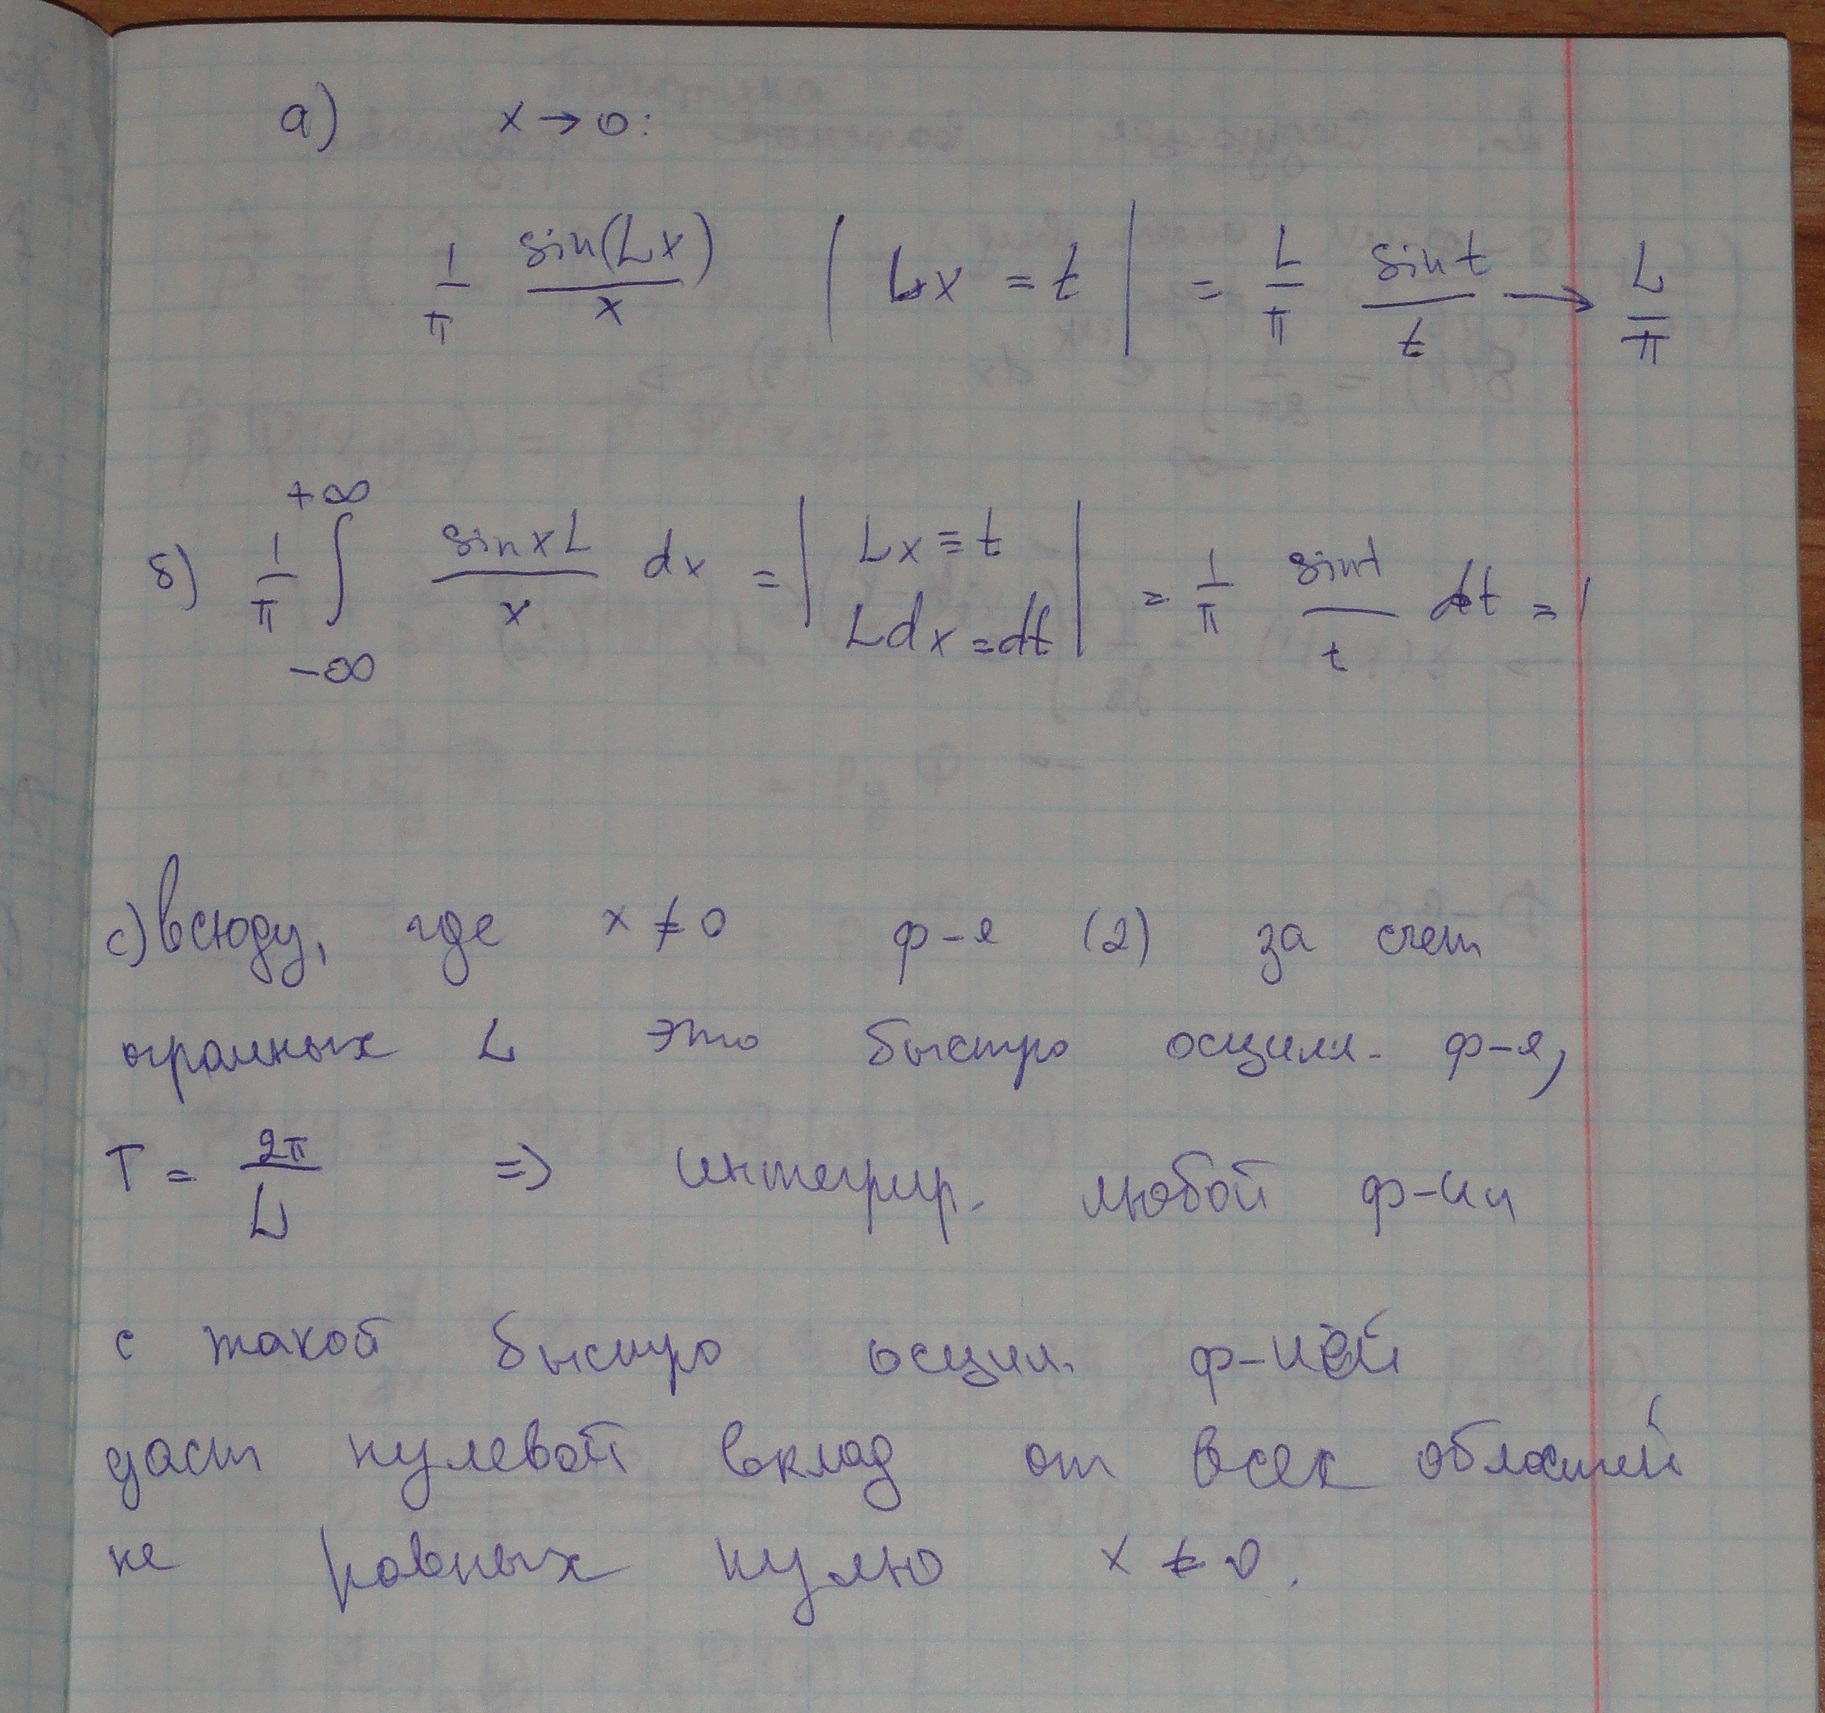 а) x → 0:
1/π sin(Lx)/x | Lx = t | = L/π sint/t → L/π
б) 1/π ∫_{-∞}^{+∞} sinxL/x dx = | Lx = t Ldx = dt | = 1/π sint/t dt = 1
с) всюду, где x ≠ 0 ф-я (2) за счет
огромных L это быстро осцилл. ф-я,
T = 2π/L => интегрир. любой ф-ии
с такой быстро осцил. ф-ией
даст нулевой вклад от всех областей
не равных нулю x ≠ 0.